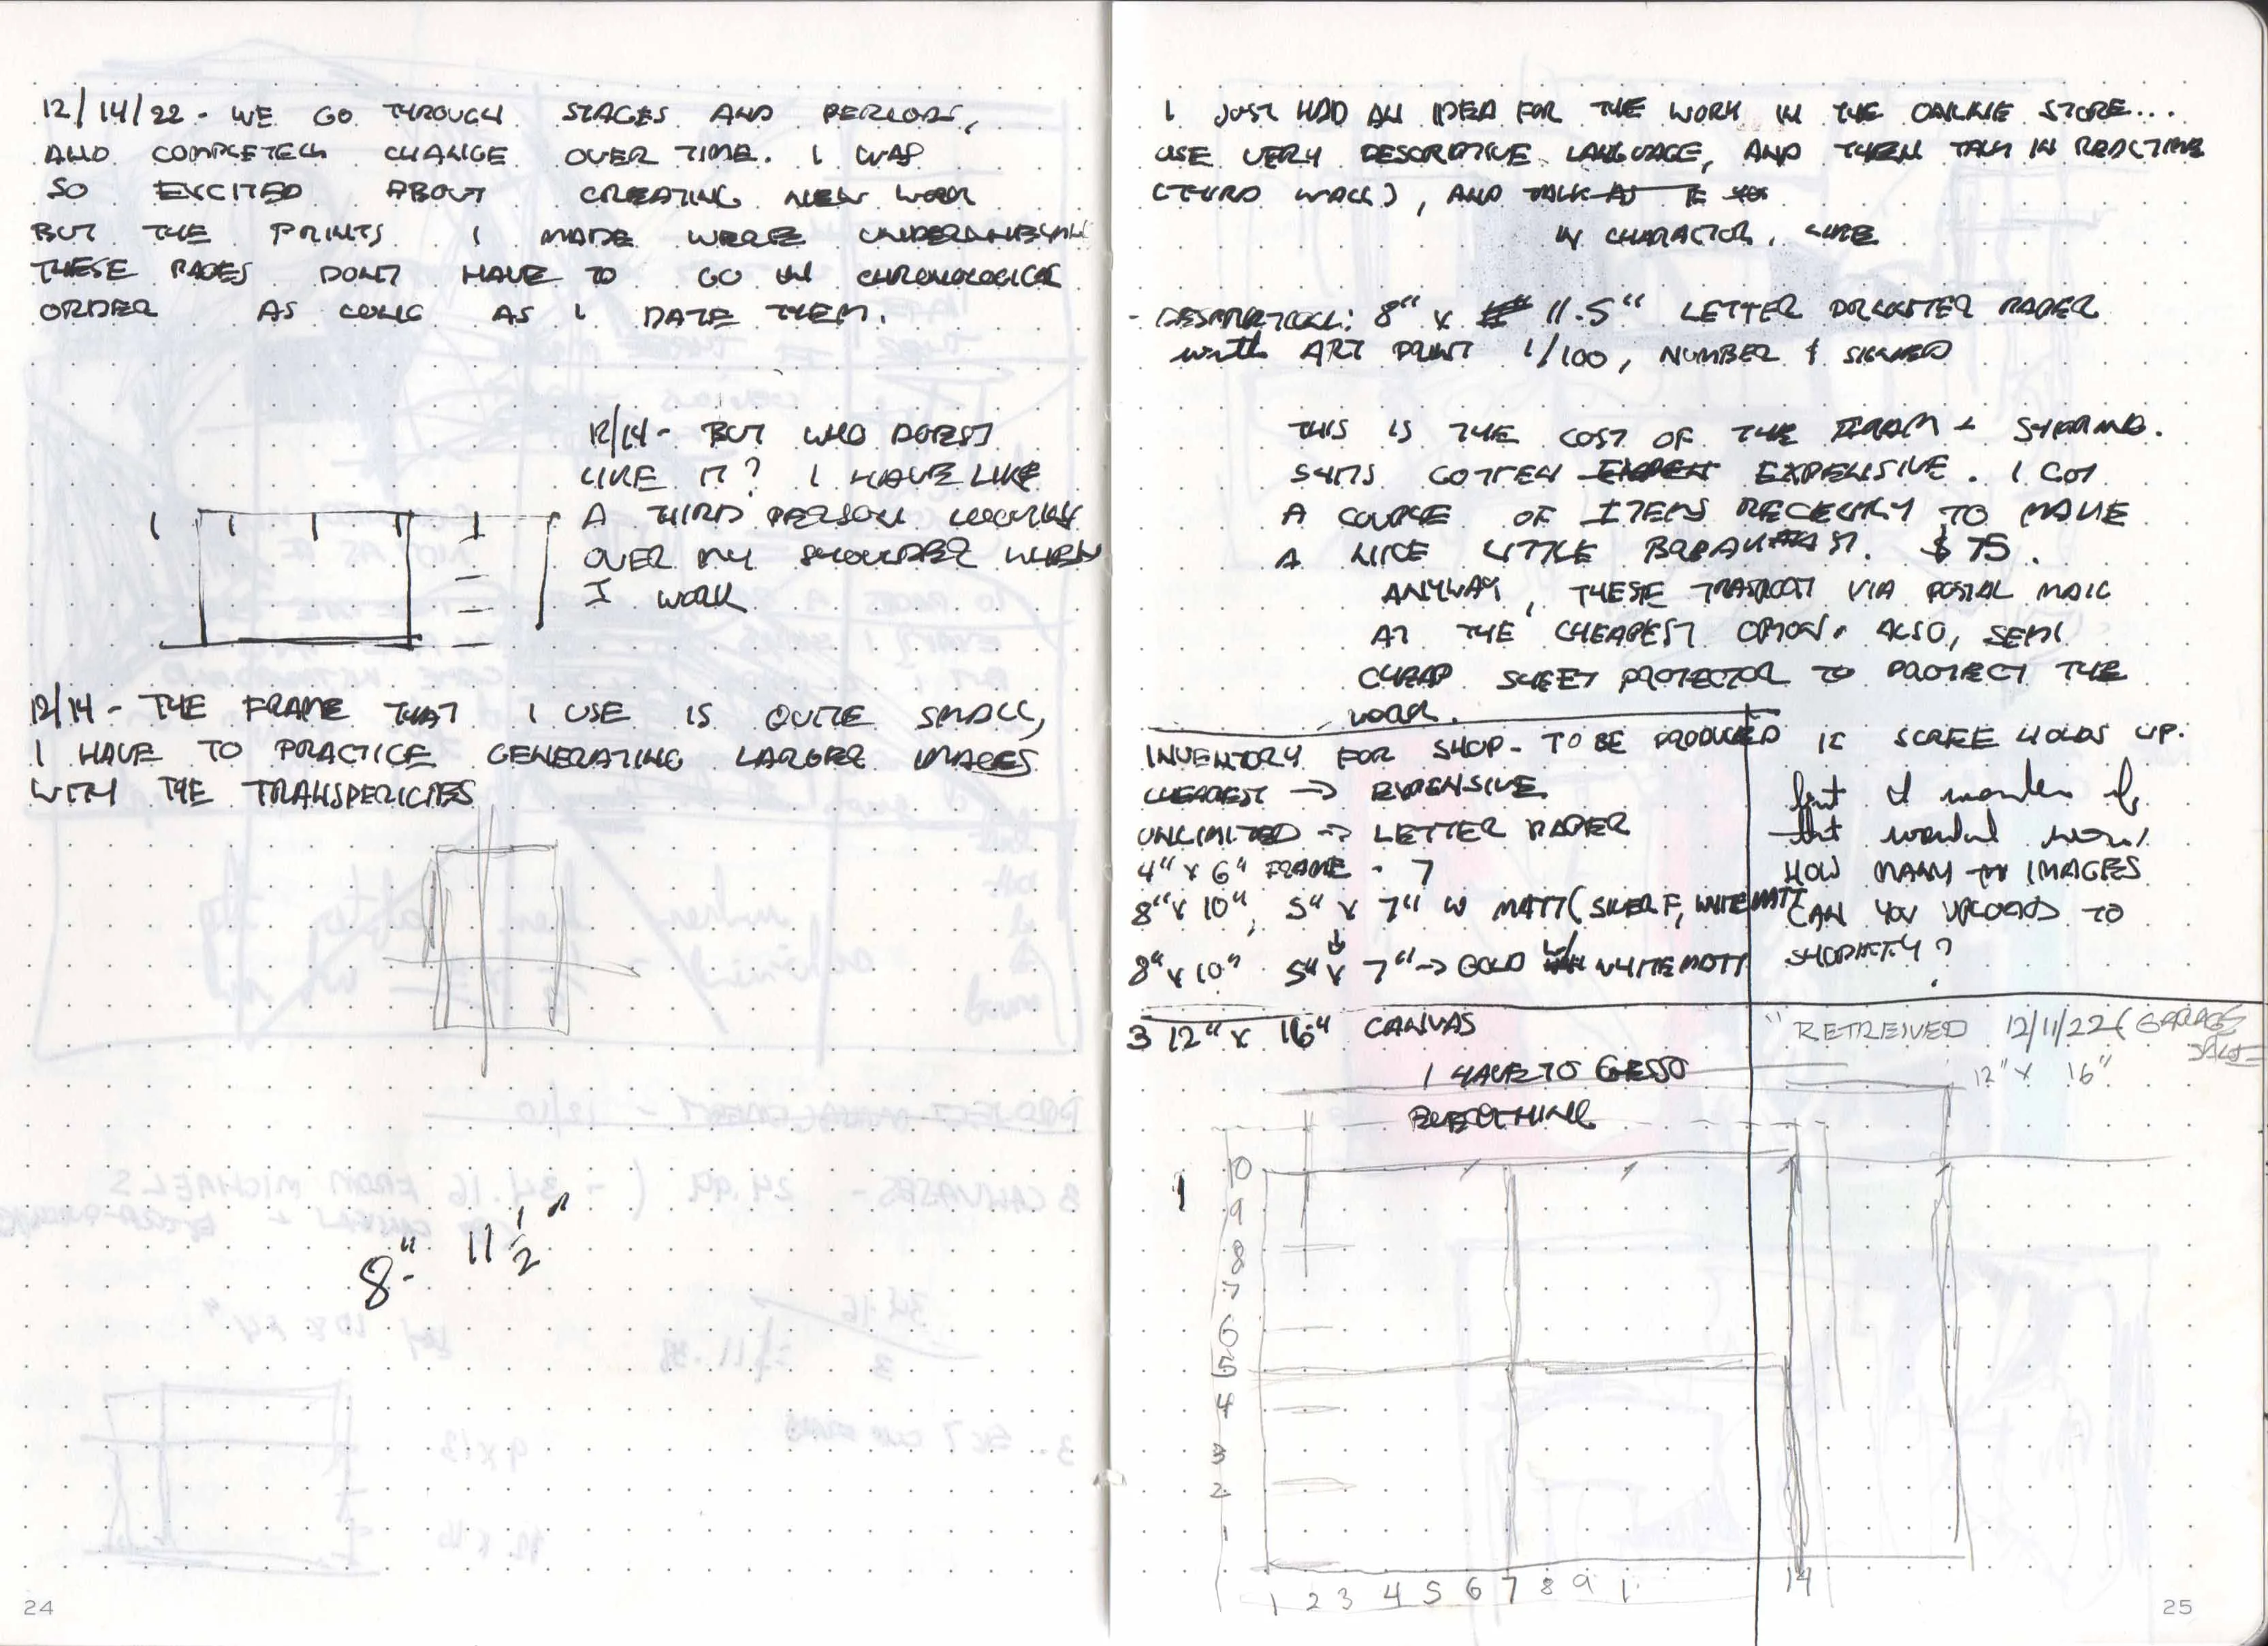 12/14/22 - WE GO THROUGH STAGES AND PERIODS,
AND COMPLETELY CHANGE OVER TIME. I WAS
SO EXCITED ABOUT CREATING NEW WORK
BUT THE PRINTS I MADE WERE UNDERWHELM
THESE PAGES DONT HAVE TO GO IN CHRONOLOGICAL
ORDER AS LONG AS I DATE THEM.
12/14 - BUT WHO DOESNT
LIKE IT? I HAVE LIKE
A THIRD PERSON LOOKING
OVER MY SHOULDER WHEN
I WORK
12/14 - THE FRAME THAT I USE IS QUITE SMALL,
I HAVE TO PRACTICE GENERATING LARGER IMAGES
WITH THE TRANSPERICIES
8" 11 1/2"
24
I JUST HAD AN IDEA FOR THE WORK IN THE ONLINE STORE...
USE VERY DESCRIPTIVE LANGUAGE, AND THEN TALK IN REALTIME
(THIRD WALL), AND TALK AS IF
IN CHARACTOR, LIKE
- DESCRIPTION: 8" x 11.5" LETTER PAPER
with ART PRINT 1/100, NUMBER & SIGNED
THIS IS THE COST OF THE
GOTTEN EXPENSIVE. I GOT
A COUPLE OF ITEMS RECENTLY TO MAKE
A NICE LITTLE BREAKFAST. $75.
ANYWAY, THESE TRANSPORT VIA POSTAL MAIL
AT THE CHEAPEST OPTION. ALSO, SEMI
CHEAP SHEET PROTECTOR TO PROTECT THE
WORK.
INVENTORY FOR SHOP - TO BE PRODUCED
CHEAPEST → EXPENSIVE
UNLIMITED → LETTER PAPER
4" x 6" FRAME - 7
8" x 10", 5" x 7" W MATT (SILVER F, WHITE MATT
8" x 10" 5" x 7" → GOLD W/ WHITE MATT
IF SCREE HOLDS UP.
but I wonder if
that would work
HOW MANY IMAGES
CAN YOU UPLOAD TO
SHOPIFY?
3 12" x 16" CANVAS
I HAVE TO GESSO
EVERYTHING
RETREIVED 12/11/22 (GARAGE
SALE
12" x 16"
1
10
9
8
7
6
5
4
3
2
1
1 2 3 4 5 6 7 8 9 1 14
25